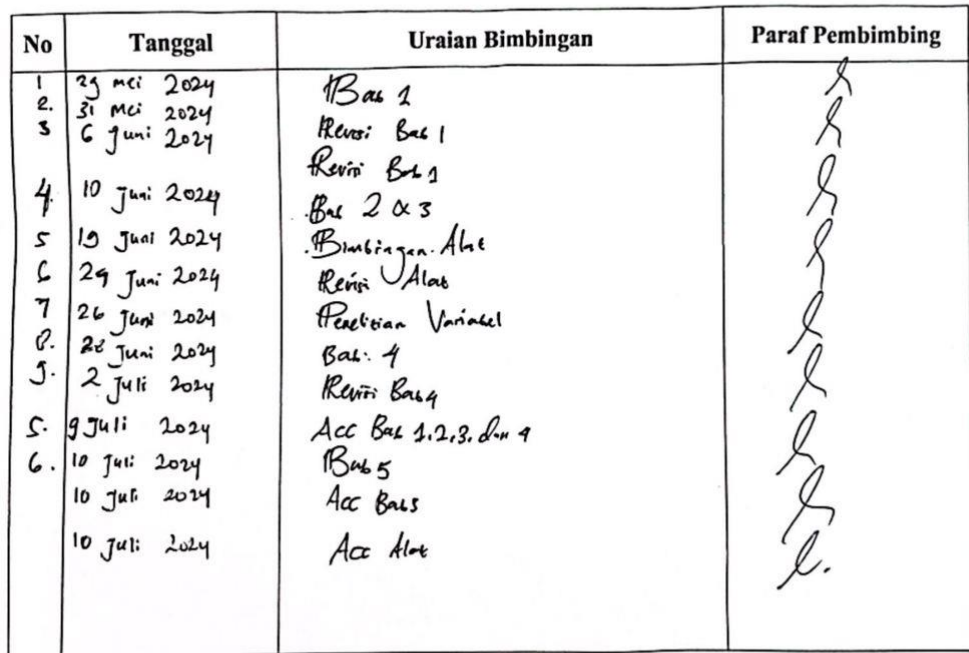 No Tanggal Uraian Bimbingan Paraf Pembimbing
1 29 mei 2024 Bab 1
2. 31 mei 2024 Revisi Bab 1
3 6 Juni 2024 Revisi Bab 1
4. 10 Juni 2024 Bab 2 & 3
5 19 Juni 2024 Bimbingan Alat
6 24 Juni 2024 Revisi Alat
7 26 Juni 2024 Penelitian Variabel
8. 28 Juni 2024 Bab. 4
9. 2 Juli 2024 Revisi Bab 4
5. 9 Juli 2024 Acc Bab 1.2.3. dan 4
6. 10 Juli 2024 Bab 5
10 Juli 2024 Acc Bab 5
10 Juli 2024 Acc Alat